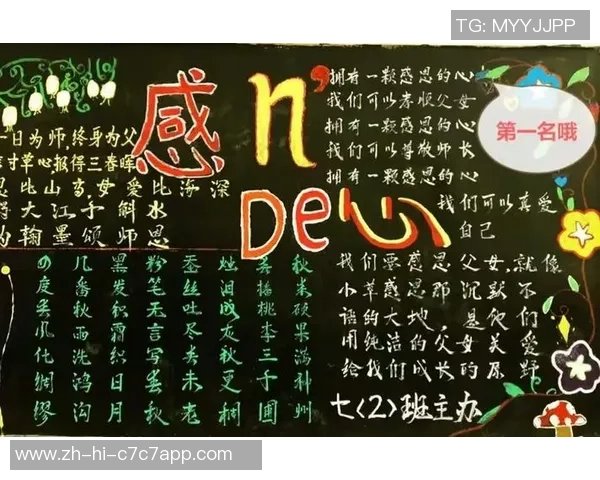 TG: MYYJJPP
感n'
De心
第一名哦
一日为师,终身为父
寸草心,报得三春晖
恩比山高,母爱比海深
得大江千斛水
为翰墨颂师恩
拥有一颗感恩的心
我们可以孝顺父母
拥有一颗感恩的心
我们可以尊敬师长
拥有一颗感恩的心
我们可以真爱
自己
秋来硕果满神州
喜摇桃李三千圃
烛泪成灰秋更稠
蚕丝吐尽春未老
粉笔无言写春秋
黑发积霜织日月
几番秋雨洗鸿沟
度春风化绸缪
我们要感恩父母,就像
小草感恩那沉默不
语的大地,是他们
用纯洁的父母关爱
给我们成长的原野
七<2>班主办
www.zh-hi-c7c7app.com